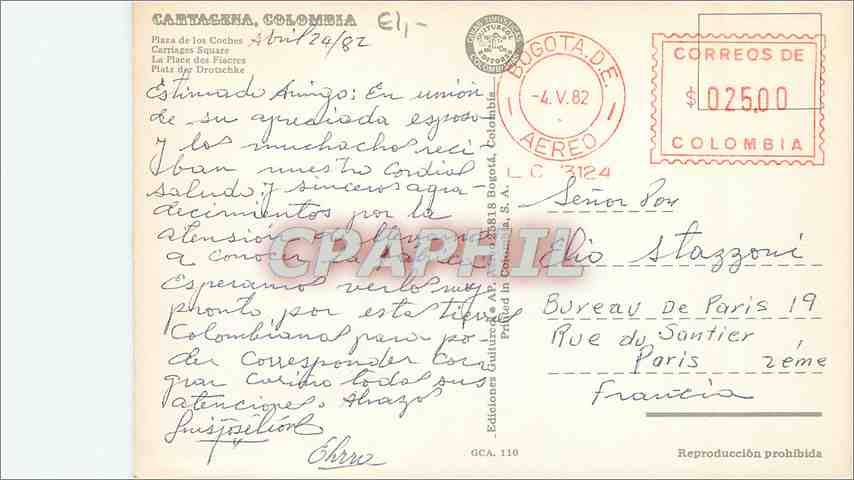 CARTAGENA, COLOMBIA
€1,-
Plaza de los Coches
Carriages Square
La Place des Fiacres
Platz der Drotschke
Abril 24/82
Estimado Amigo: En unión
de su apreciada esposa
y los muchachos reci
ban nuestro Cordial
saludo y sinceros agra-
decimientos por la
atensión de llevarnos
a conocer la
Esperamos verlos muy
pronto por esta tierra
Colombiana para po-
der corresponder con
gran cariño todas sus
atenciones. Abrazos
Ediciones Guiturco
Bogotá, Colombia
Printed in Colombia, S. A.
BOGOTA.D.E.
-4.V.82
AEREO
L C 3124
CORREOS DE
$ 025,00
COLOMBIA
Señor Don
Elio Stazzoni
Bureau De Paris 19
Rue du Santier
Paris 2éme
Francia
CPAPHIL
GCA. 110
Reproducción prohibida